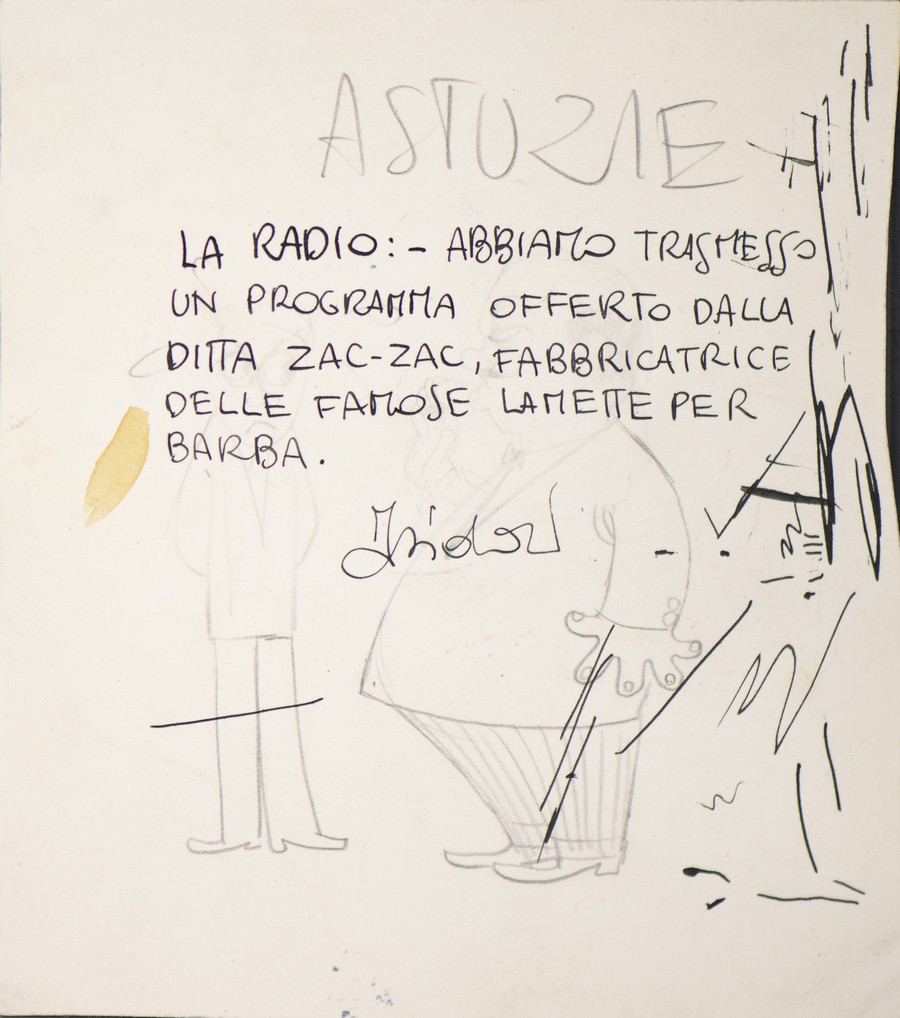 ASTUZIE
LA RADIO: - ABBIAMO TRASMESSO
UN PROGRAMMA OFFERTO DALLA
DITTA ZAC-ZAC, FABBRICATRICE
DELLE FAMOSE LAMETTE PER
BARBA.